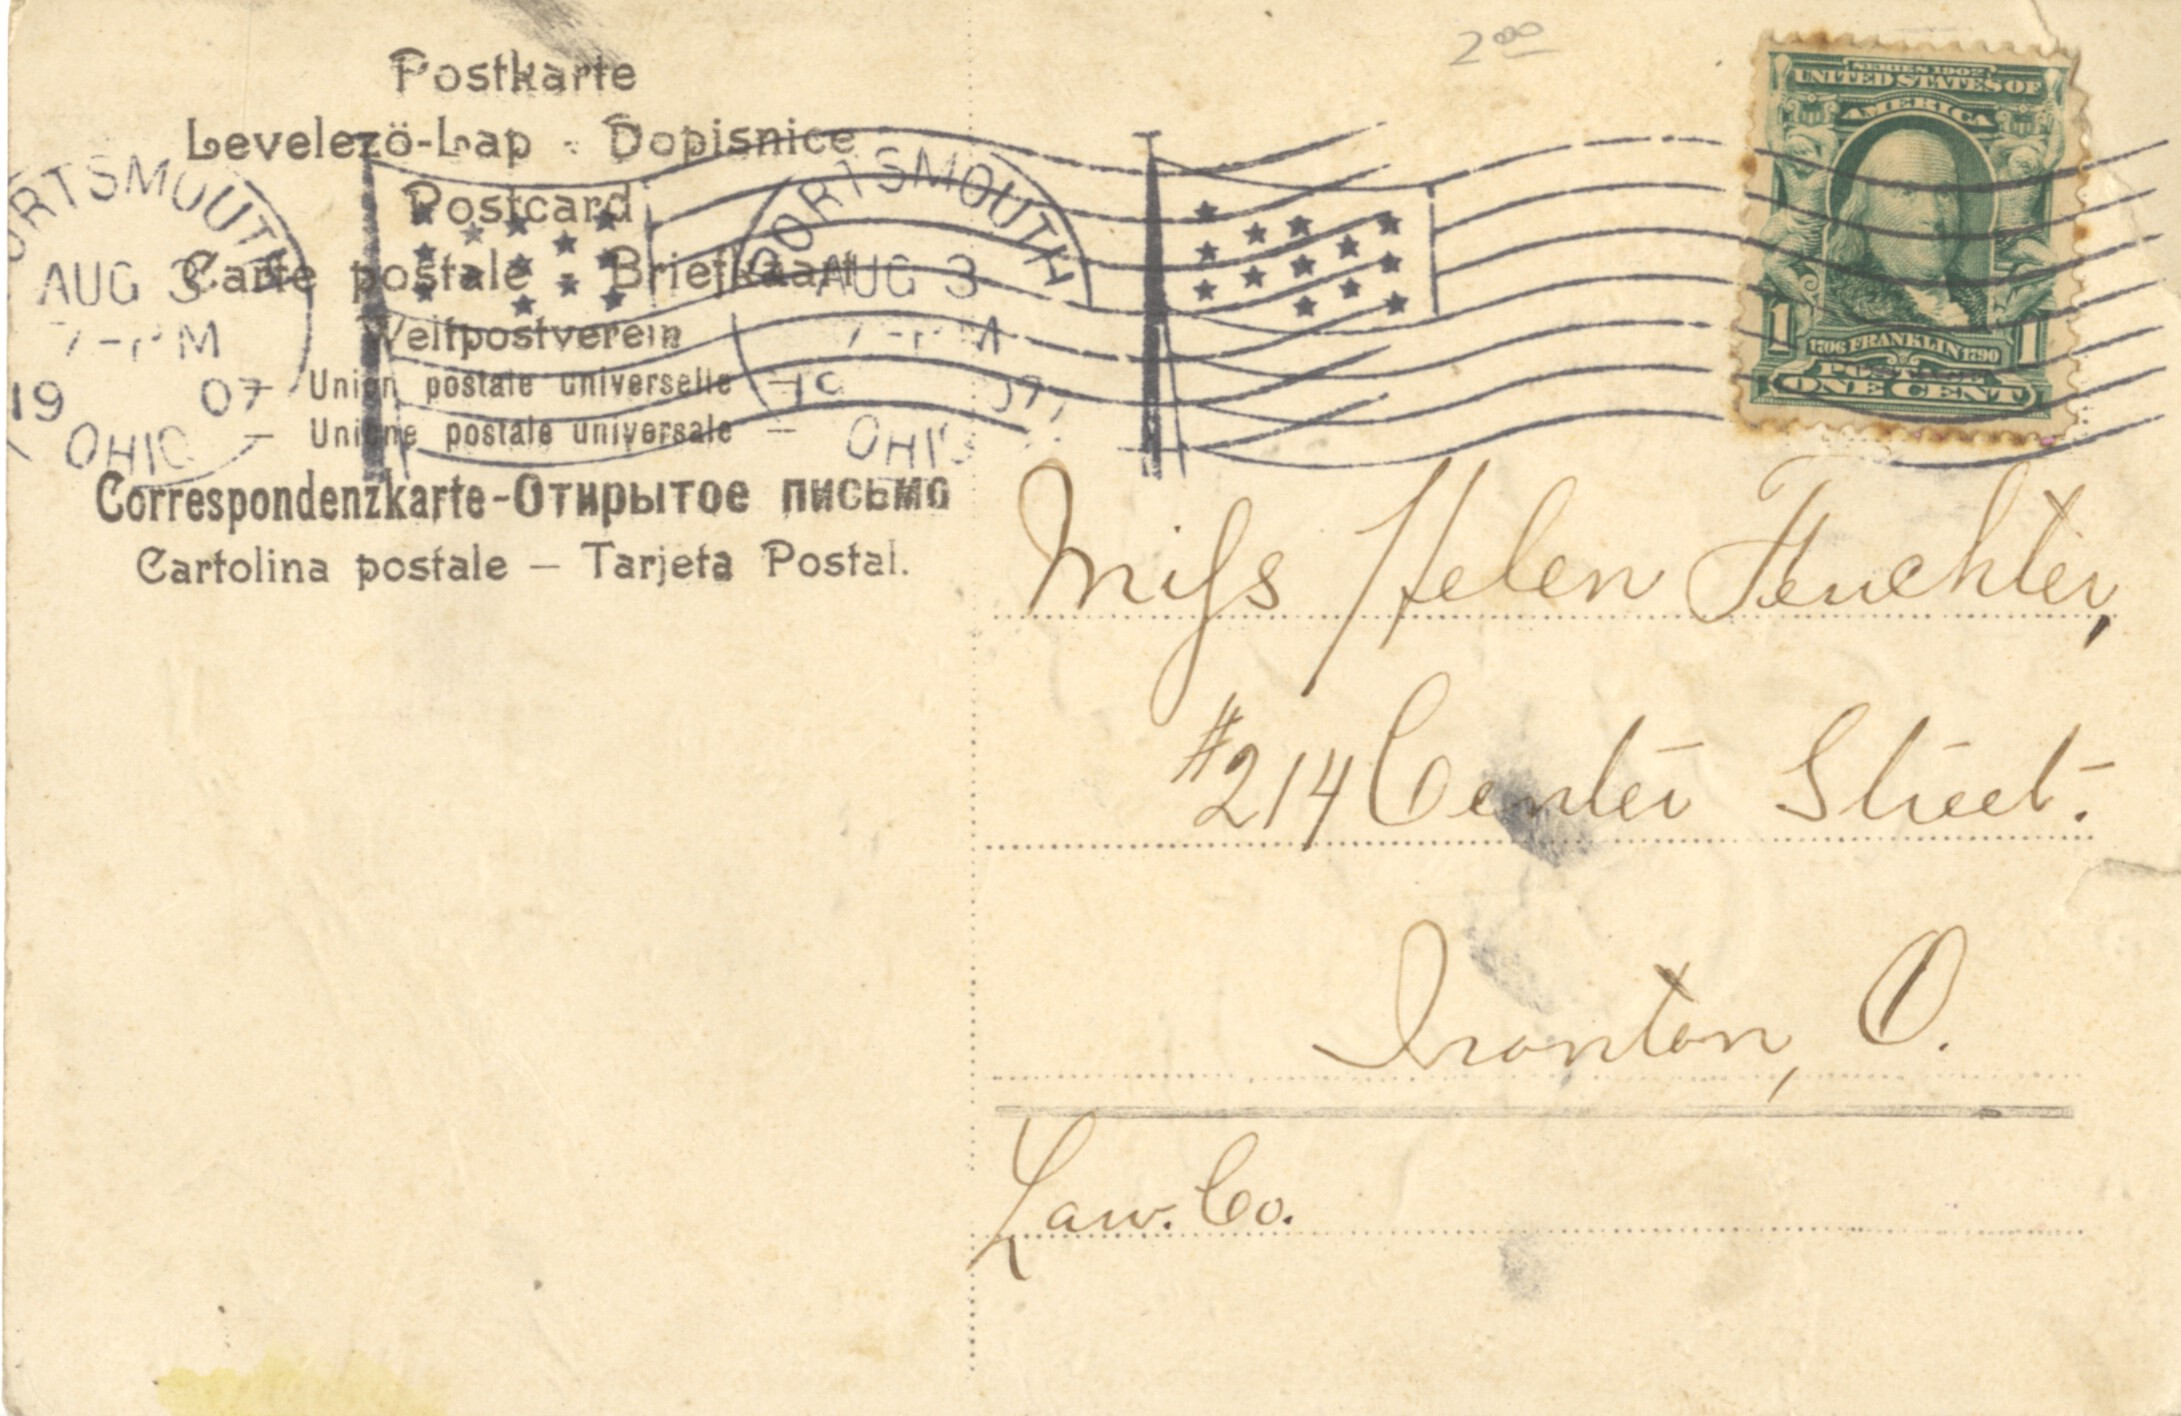 2.00
Postkarte
Levelezö-Lap - Dopisnice
Postcard
Carte postale Briefkaart
Weltpostverein
— Union postale universelle —
— Unione postale universale —
Correspondenzkarte-Отирытое письмо
Cartolina postale — Tarjeta Postal.
PORTSMOUTH
AUG 3
7-PM
19 07
OHIO
PORTSMOUTH
AUG 3
7-PM
19 07
OHIO
SERIES 1902
UNITED STATES OF
AMERICA
1 1706 FRANKLIN 1790 1
POSTAGE
ONE CENT
Miss Helen Feuchter,
#214 Center Street.
Ironton, O.
Law. Co.